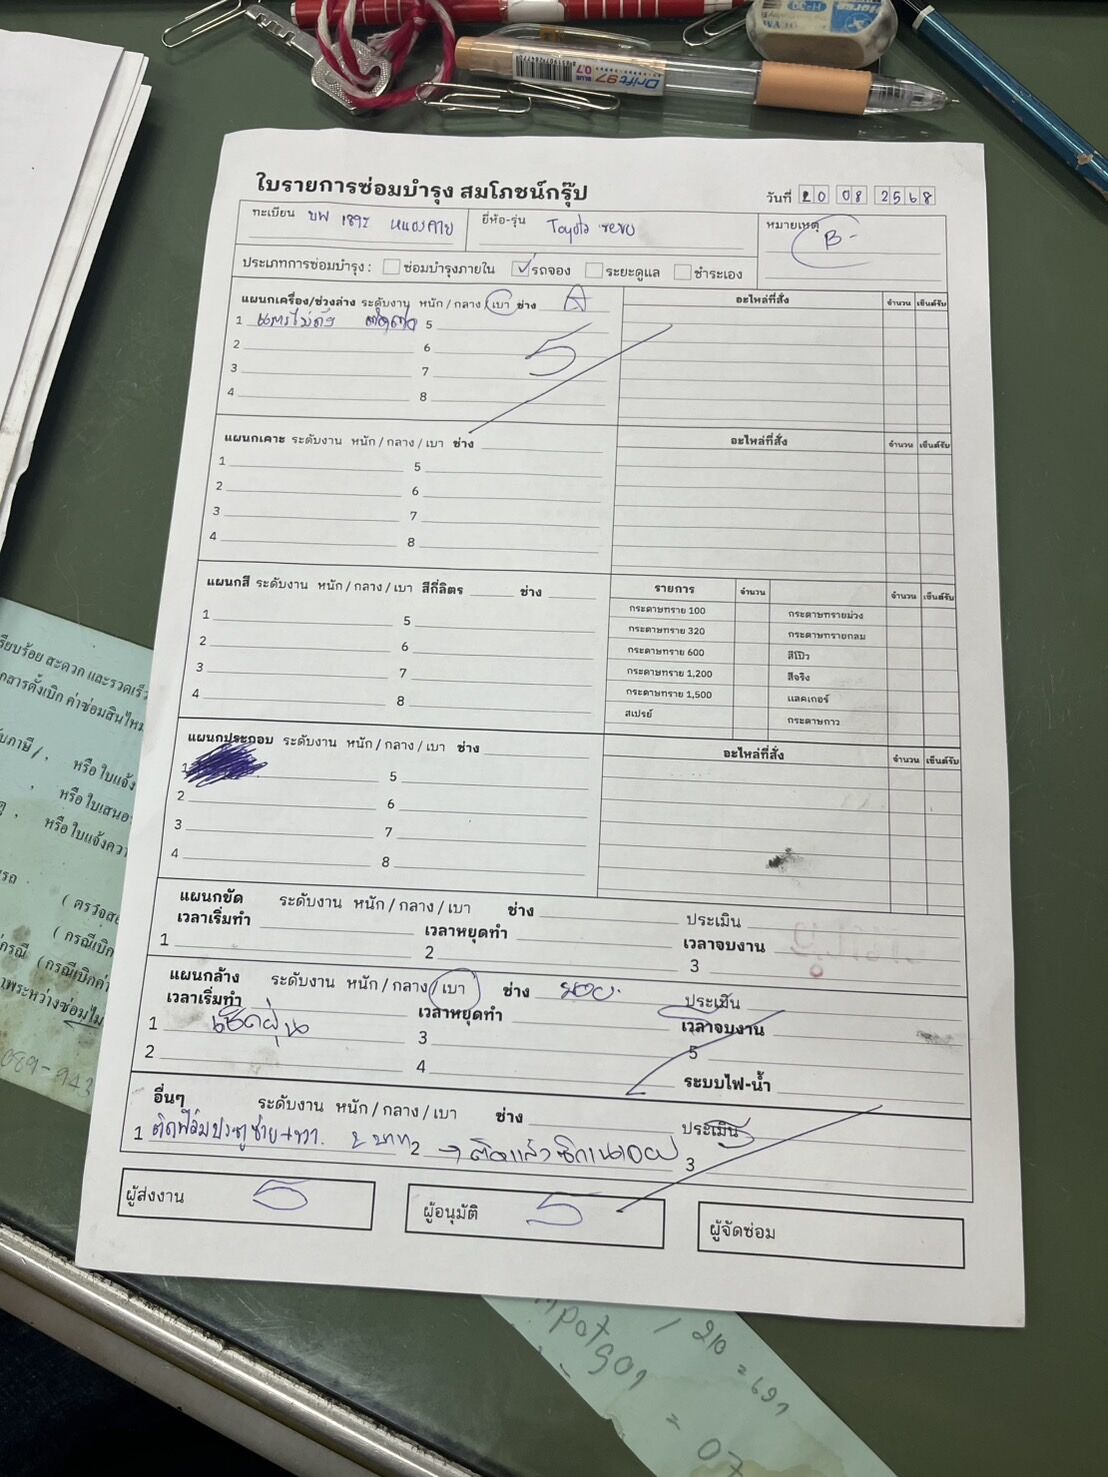 ใบรายการซ่อมบำรุง สมโภชน์กรุ๊ป
วันที่ 20 08 2568
ทะเบียน หนองคาย ยี่ห้อ-รุ่น Toyota revo หมายเหตุ B-
ประเภทการซ่อมบำรุง : ซ่อมบำรุงภายใน รถจอง ระยะดูแล ชำระเอง
แผนกเครื่อง/ช่วงล่าง ระดับงาน หนัก / กลาง / เบา ช่าง A
อะไหล่ที่สั่ง จำนวน เซ็นต์รับ
1 แตรไม่ดัง 5
2 6 5
3 7
4 8
แผนกเคาะ ระดับงาน หนัก / กลาง / เบา ช่าง
อะไหล่ที่สั่ง จำนวน เซ็นต์รับ
1 5
2 6
3 7
4 8
แผนกสี ระดับงาน หนัก / กลาง / เบา สีกี่ลิตร ช่าง
รายการ จำนวน จำนวน เซ็นต์รับ
1 5
2 6
3 7
4 8
กระดาษทราย 100 กระดาษทรายม่วง
กระดาษทราย 320 กระดาษทรายกลม
กระดาษทราย 600 สีโป๊ว
กระดาษทราย 1,200 สีจริง
กระดาษทราย 1,500 แลคเกอร์
สเปรย์ กระดาษกาว
แผนกประกอบ ระดับงาน หนัก / กลาง / เบา ช่าง
อะไหล่ที่สั่ง จำนวน เซ็นต์รับ
1 5
2 6
3 7
4 8
แผนกขัด ระดับงาน หนัก / กลาง / เบา ช่าง ประเมิน
เวลาเริ่มทำ เวลาหยุดทำ เวลาจบงาน
1 2 3
แผนกล้าง ระดับงาน หนัก / กลาง / เบา ช่าง ประเมิน
เวลาเริ่มทำ เวลาหยุดทำ เวลาจบงาน
1 เช็ดฝุ่น 3 5
2 4 ระบบไฟ-น้ำ
อื่นๆ ระดับงาน หนัก / กลาง / เบา ช่าง ประเมิน
1 ติดฟิล์มประตูซ้าย+ขวา 2 บาน 2 3
ผู้ส่งงาน 5 ผู้อนุมัติ 5 ผู้จัดซ่อม
Drift 97
0.7
BLUE
หรือ ใบแจ้ง
หรือ ใบเสนอ
หรือ ใบแจ้งความ
089-943
/ 210 = 691